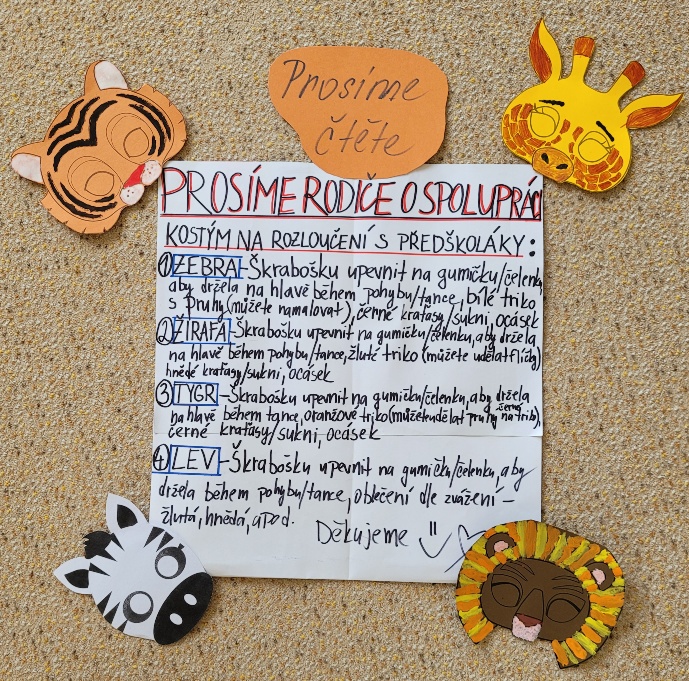 Prosíme
čtěte
PROSÍME RODIČE O SPOLUPRÁC
KOSTÝM NA ROZLOUČENÍ S PŘEDŠKOLÁKY:
① ZEBRA – Škrabošku upevnit na gumičku/čelenku,
aby držela na hlavě během pohybu/tance, bílé triko
s pruhy (můžete namalovat), černé kraťasy/sukni, ocásek
② ŽIRAFA – Škrabošku upevnit na gumičku/čelenku, aby držela
na hlavě během pohybu/tance, žluté triko (můžete udělat flíčky)
hnědé kraťasy/sukni, ocásek
③ TYGR – Škrabošku upevnit na gumičku/čelenku, aby držela
na hlavě během tance, oranžové triko (můžete udělat černé pruhy na triko),
černé kraťasy/sukni, ocásek
④ LEV – Škrabošku upevnit na gumičku/čelenku, aby
držela během pohybu/tance, oblečení dle zvážení –
žlutá, hnědá, apod.
Děkujeme